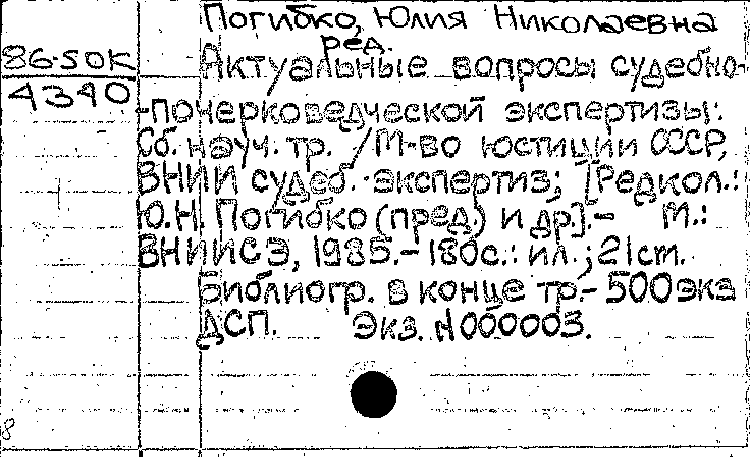 Погибко, Юлия Николаевна
ред.
86-5ОК
4340
Актуальные вопросы судебно-
-почерковедческой экспертизы:
Сб. науч. тр. / М-во юстиции СССР,
ВНИИ судеб. экспертиз; [Редкол.:
Ю.Н. Погибко (пред) и др].- М.:
ВНИИСЭ, 1985.- 180с.: ил.; 21см.
Библиогр. в конце тр.- 500экз
ДСП. Экз. N000003.
8